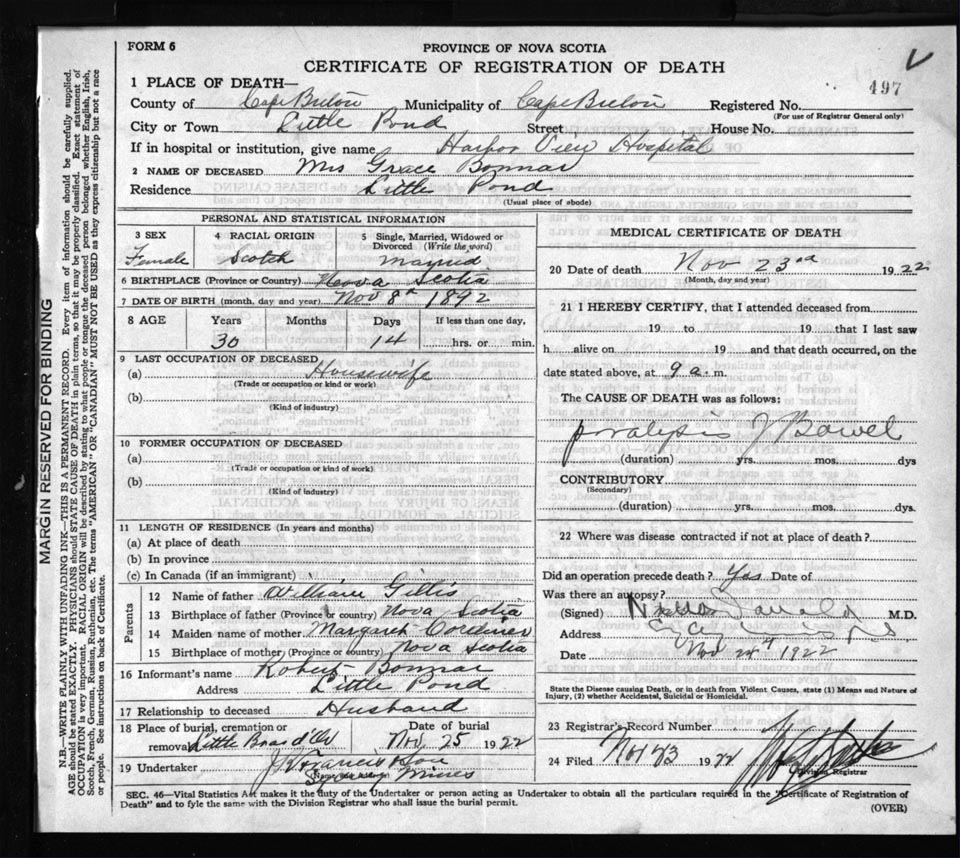 FORM 6
PROVINCE OF NOVA SCOTIA
CERTIFICATE OF REGISTRATION OF DEATH
497
1 PLACE OF DEATH—
County of Cape Breton Municipality of Cape Breton Registered No.
(For use of Registrar General only)
City or Town Little Pond Street House No.
If in hospital or institution, give name Harbor View Hospital
2 NAME OF DECEASED Mrs Grace Bonnar
Residence Little Pond
(Usual place of abode)
PERSONAL AND STATISTICAL INFORMATION
3 SEX 4 RACIAL ORIGIN 5 Single, Married, Widowed or Divorced (Write the word)
Female Scotch Married
6 BIRTHPLACE (Province or Country) Nova Scotia
7 DATE OF BIRTH (month, day and year) Nov 8th 1892
8 AGE Years Months Days If less than one day,
30 14 hrs. or min.
9 LAST OCCUPATION OF DECEASED
(a) Housewife
(Trade or occupation or kind or work)
(b)
(Kind of industry)
10 FORMER OCCUPATION OF DECEASED
(a)
(Trade or occupation or kind of work)
(b)
(Kind of industry)
11 LENGTH OF RESIDENCE (In years and months)
(a) At place of death
(b) In province
(c) In Canada (if an immigrant)
Parents
12 Name of father William Gillis
13 Birthplace of father (Province or country) Nova Scotia
14 Maiden name of mother Margaret Cordiner
15 Birthplace of mother (Province or country) Nova Scotia
16 Informant's name Robert Bonnar
Address Little Pond
17 Relationship to deceased Husband
18 Place of burial, cremation or removal Little Bras d'Or Date of burial Nov 25 1922
19 Undertaker
Mines
MEDICAL CERTIFICATE OF DEATH
20 Date of death Nov 23rd 1922
(Month, day and year)
21 I HEREBY CERTIFY, that I attended deceased from
19 to 19 that I last saw
h alive on 19 and that death occurred, on the
date stated above, at 9 a. m.
The CAUSE OF DEATH was as follows:
paralysis of Bowel
(duration) yrs. mos. dys
CONTRIBUTORY
(Secondary)
(duration) yrs. mos. dys.
22 Where was disease contracted if not at place of death?
Did an operation precede death? Yes Date of
Was there an autopsy?
(Signed) M.D.
Address
Date Nov 24th 1922
State the Disease causing Death, or in death from Violent Causes, state (1) Means and Nature of Injury, (2) whether Accidental, Suicidal or Homicidal.
23 Registrar's Record Number
24 Filed Nov 23 1922
Division Registrar
SEC. 46—Vital Statistics Act makes it the duty of the Undertaker or person acting as Undertaker to obtain all the particulars required in the "Certificate of Registration of
Death" and to fyle the same with the Division Registrar who shall issue the burial permit.
(OVER)
MARGIN RESERVED FOR BINDING
N.B.—WRITE PLAINLY WITH UNFADING INK—THIS IS A PERMANENT RECORD. Every item of information should be carefully supplied.
AGE should be stated EXACTLY. PHYSICIANS should STATE CAUSE OF DEATH in plain terms, so that it may be properly classified. Exact statement of
OCCUPATION is very important. RACIAL ORIGIN will be described by stating to what people or tongue the deceased person belonged whether English, Irish,
Scotch, French, German, Russian, Ruthenian, etc. The terms "AMERICAN" OR "CANADIAN" MUST NOT BE USED as they express citizenship but not a race
or people. See instructions on back of Certificate.